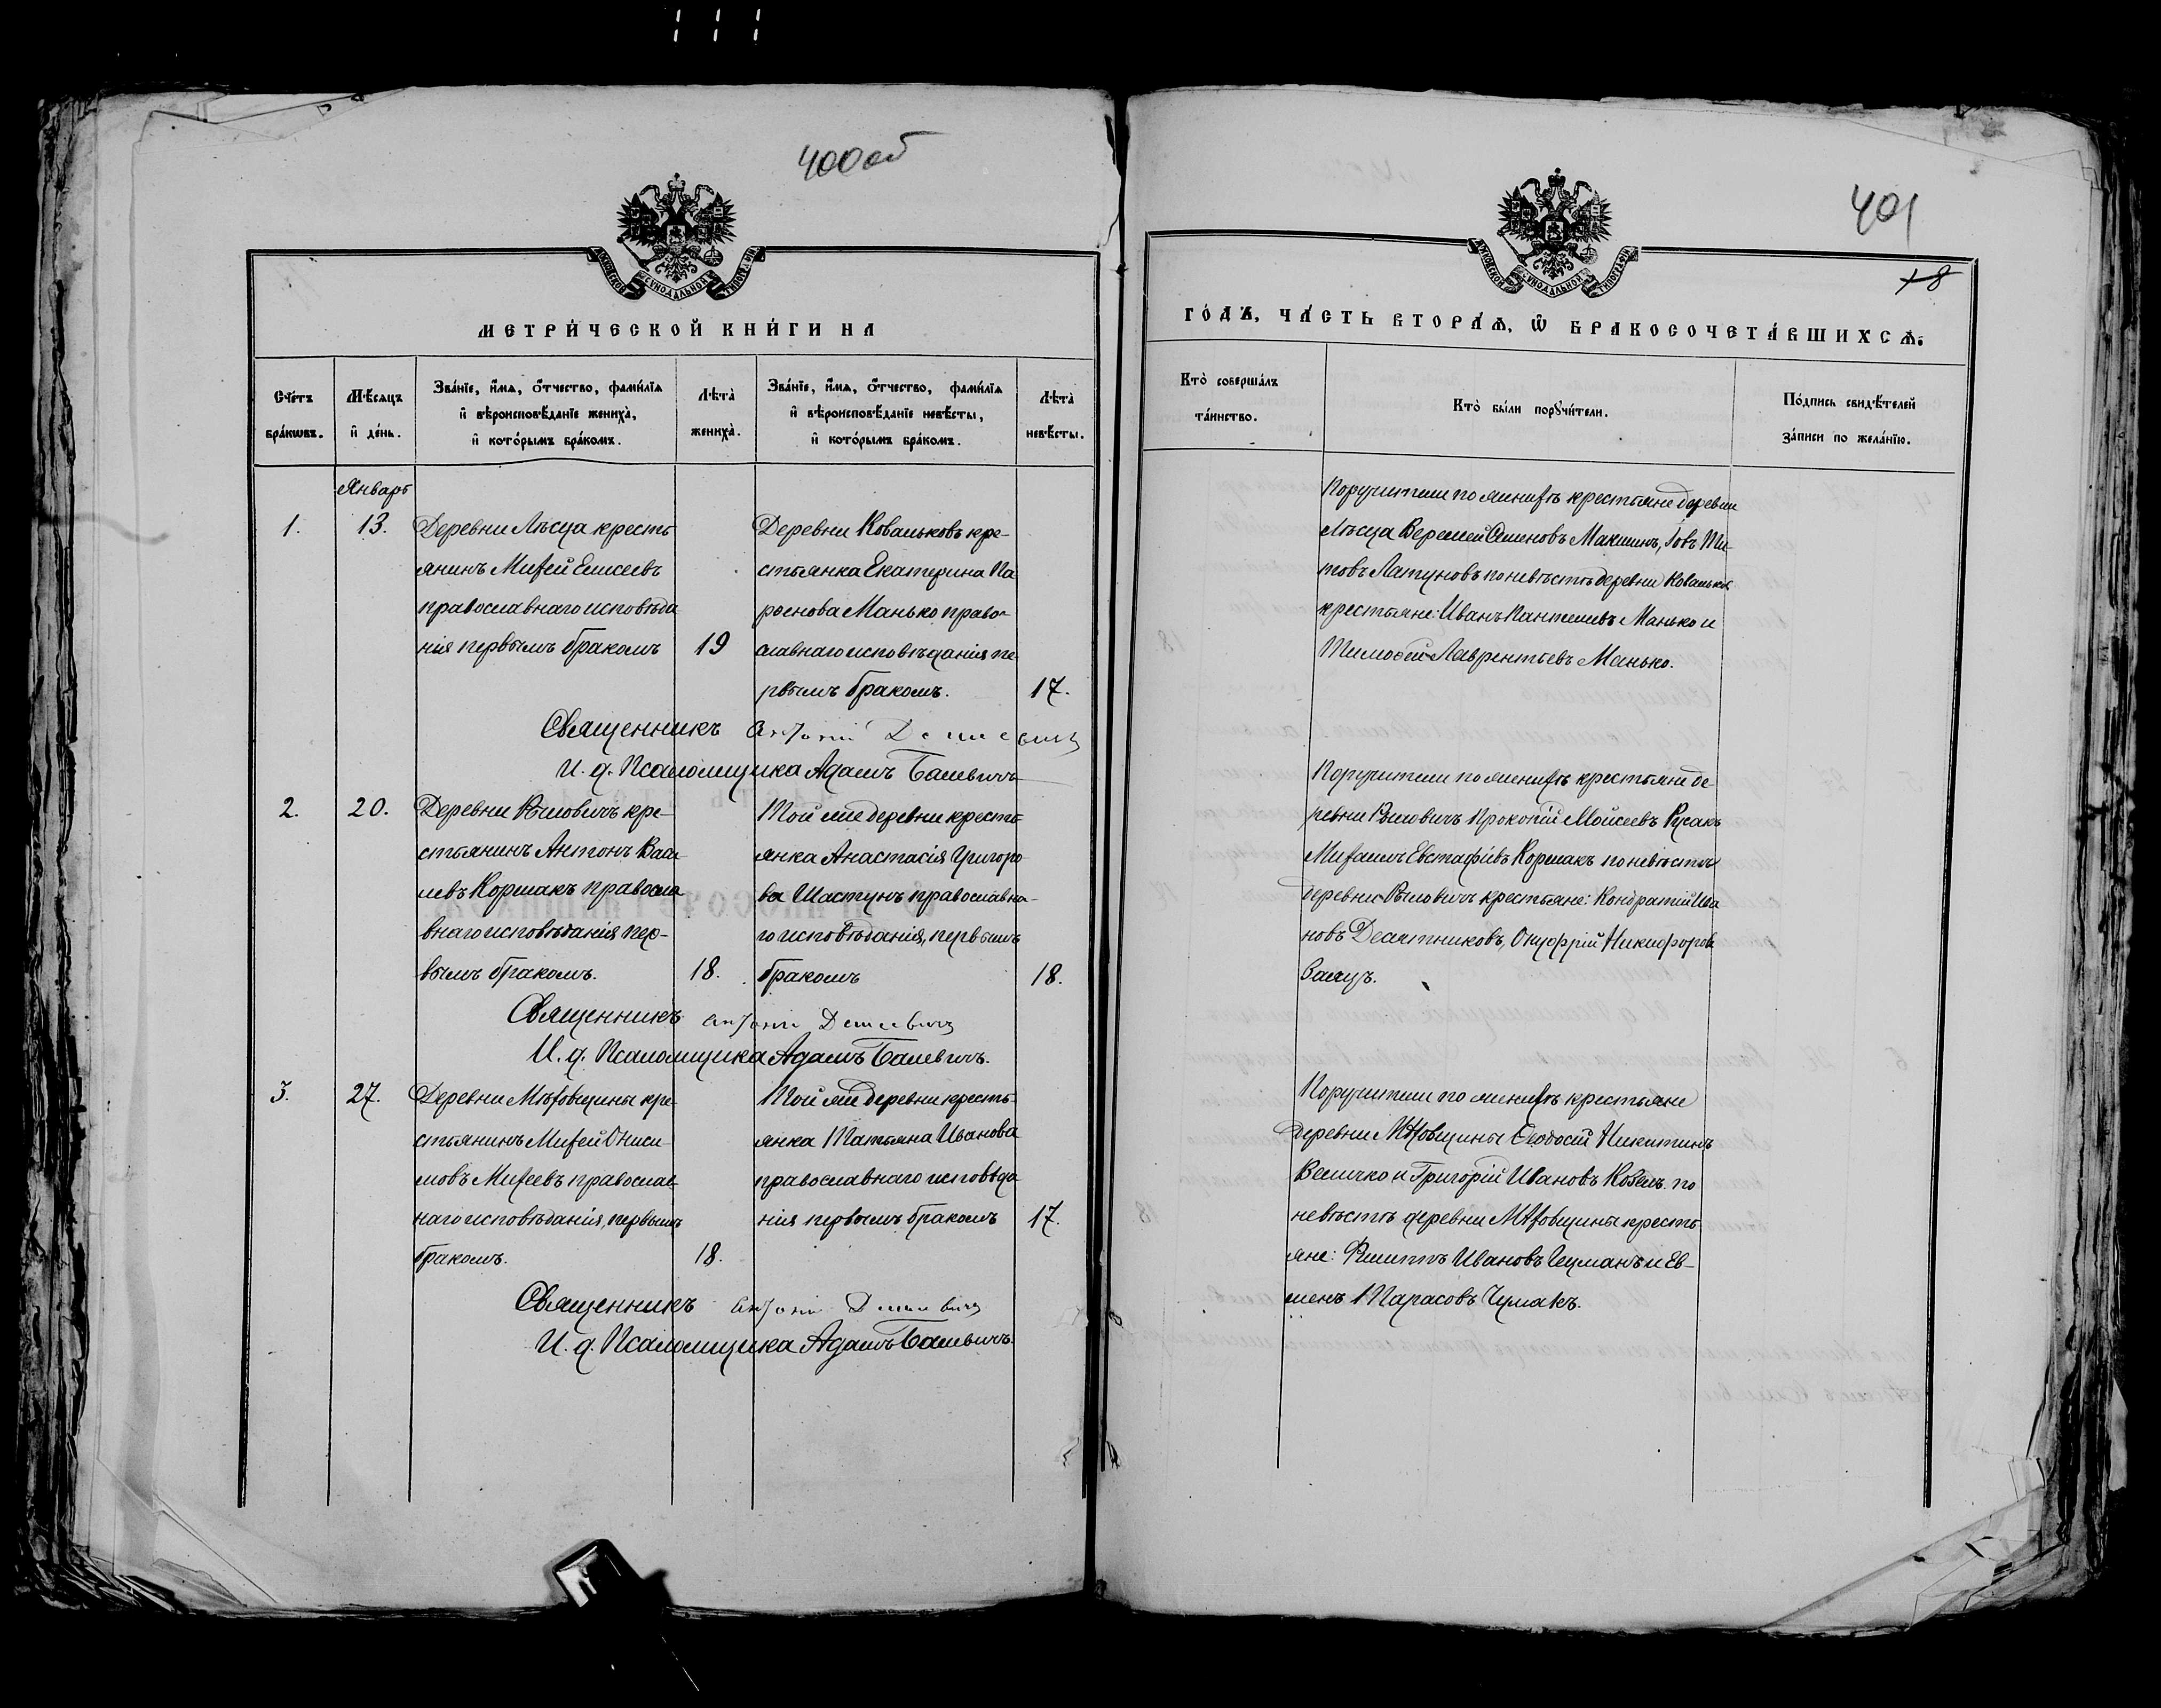 400об
МОСКОВСКОЙ СѴНОДАЛЬНОЙ ТИПОГРАФІИ
МЕТРИ́ЧЕСКОЙ КНИ́ГИ НА
Сче́тъ бра́кωвъ.
Мѣ́сяцъ и҆ де́нь.
Зва́нїе, и҆́мѧ, ѻ҆́тчество, фами́лїѧ и҆ вѣроисповѣ́данїе жениха̀, и҆ кото́рымъ бра́комъ.
Лѣта̀ жениха̀.
Зва́нїе, и҆́мѧ, ѻ҆́тчество, фами́лїѧ и҆ вѣроисповѣ́данїе невѣ́сты, и҆ кото́рымъ бра́комъ.
Лѣта̀ невѣ́сты.
Январь
1. 13.
Деревни Лѣсца кресть
янинъ Михей Елисеевъ
православнаго исповѣда
нія первымъ бракомъ 19
Деревни Ковальковъ кре-
стьянка Екатерина Па
рѳенова Манько право-
славнаго исповѣданія пе-
рвымъ бракомъ. 17.
Священникъ Антоній
И. д. Псаломщика Адамъ Балевичъ
2. 20.
Деревни кре-
стьянинъ Антонъ Васи
левъ Коршакъ правосла
внаго исповѣданія пер-
вымъ бракомъ. 18.
Той же деревни кресть
янка Анастасія Григоро
ва Шастунъ православна-
го исповѣданія, первымъ
бракомъ 18.
Священникъ Антоній
И. д. Псаломщика Адамъ Балевичъ.
3. 27.
Деревни Мѣховщины кре
стьянинъ Михей Ониси
мовъ Михеевъ православ
наго исповѣданія, первымъ
бракомъ. 18.
Той же деревни кресть-
янка Татьяна Иванова
православнаго исповѣда
нія первымъ бракомъ 17.
Священникъ Антоній
И. д. Псаломщика Адамъ Балевичъ.
401
18
МОСКОВСКОЙ СѴНОДАЛЬНОЙ ТИПОГРАФІИ
ГО́ДЪ, ЧА́СТЬ ВТОРА́Ѧ, Ѡ҆ БРАКОСОЧЕТА́ВШИХСѦ.
Кто̀ соверша́лъ та́инство.
Кто̀ бы́ли порꙋчи́тели.
По́дпись свидѣ́телей за́писи по жела́нїю.
Поручители по женихѣ крестьяне деревни
Лѣсца Веремей Семеновъ Іовъ Ти-
товъ Лапуновъ по невѣстѣ деревни Ковальковъ
крестьяне: Иванъ Пантелевъ Манько и
Тимоѳей Лаврентьевъ Манько.
Поручители по женихѣ крестьяне де
ревни Прокопій Мойсеевъ Русакъ
Михаилъ Евстафіевъ Коршакъ по невѣстѣ
деревни крестьяне: Кондратій Ива
новъ Десятниковъ, Онуфрій Никифоровъ
Заяцъ.
Поручители по женихѣ крестьяне
деревни Мѣховщины Ѳеодосій Никитинъ
Величко и Григорій Ивановъ Козелъ. по
невѣстѣ деревни Мѣховщины кресть
яне: Филиппъ Ивановъ и Ев-
менъ Тарасовъ Чумакъ.